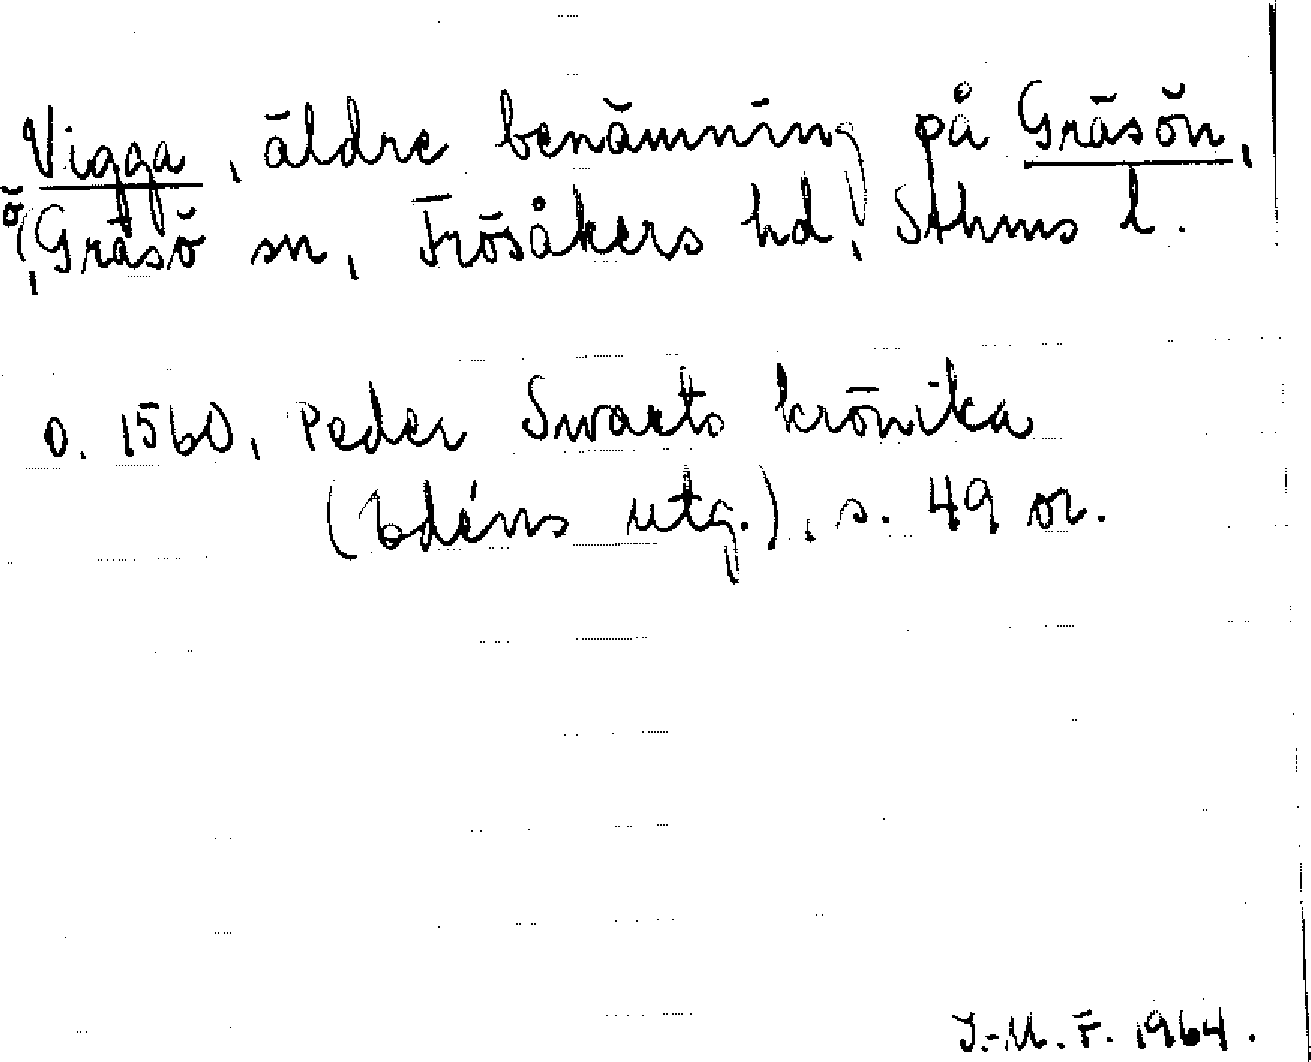 Vigga, äldre benämning på Gräsön,
ö, Gräsö sn, Frösåkers hd, Sthms l.
o. 1560, Peder Swarts krönika
(Edéns utg.), s. 49 or.
J.-M. F. 1964.